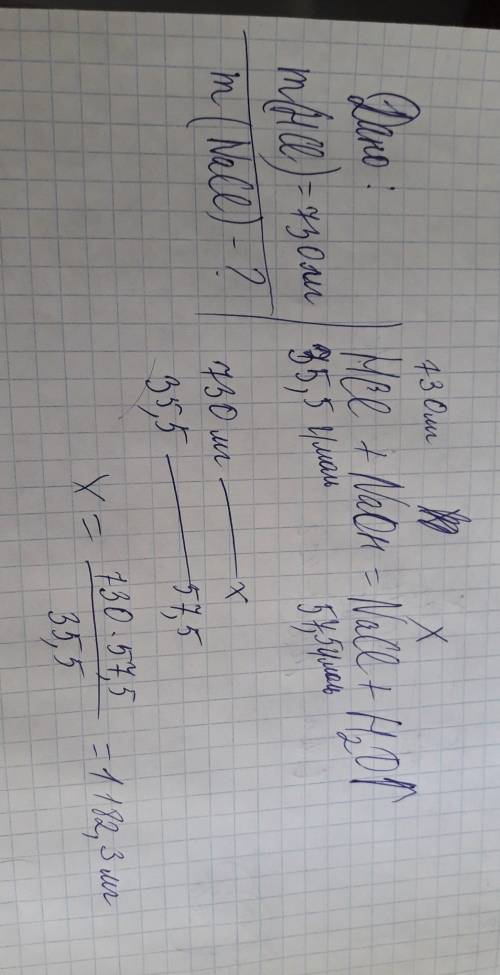 Дано:
m(HCl) = 730 мг
m(NaCl) - ?
730 мг X
HCl + NaOH = NaCl + H₂O
35,5 г/моль 57,5 г/моль
730 мг — x
35,5 — 57,5
X = 730 · 57,5 / 35,5 = 1182,3 мг